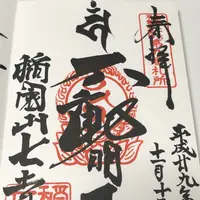 奉拝
平成廿九年
十一月十
不動明王
稲園山七寺